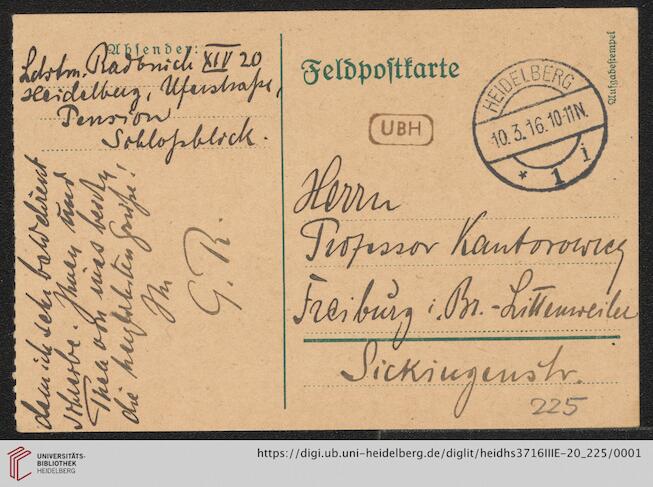 Absender:
Ldstm. Radbruch XIV 20
Heidelberg, Uferstraße,
Pension
Schloßblick.
dem ich sehr bald direkt
schreibe. Ihnen und
Thea von uns beiden
die herzlichsten Grüße!
Ihr
G. R.
Feldpostkarte
Aufgabestempel
UBH
HEIDELBERG
10.3.16.10-11N.
* 1 i
Herrn
Professor Kantorowicz
Freiburg i. Br.-Littenweiler
Sickingenstr.
225
UNIVERSITÄTS-
BIBLIOTHEK
HEIDELBERG
https://digi.ub.uni-heidelberg.de/diglit/heidhs3716IIIE-20_225/0001